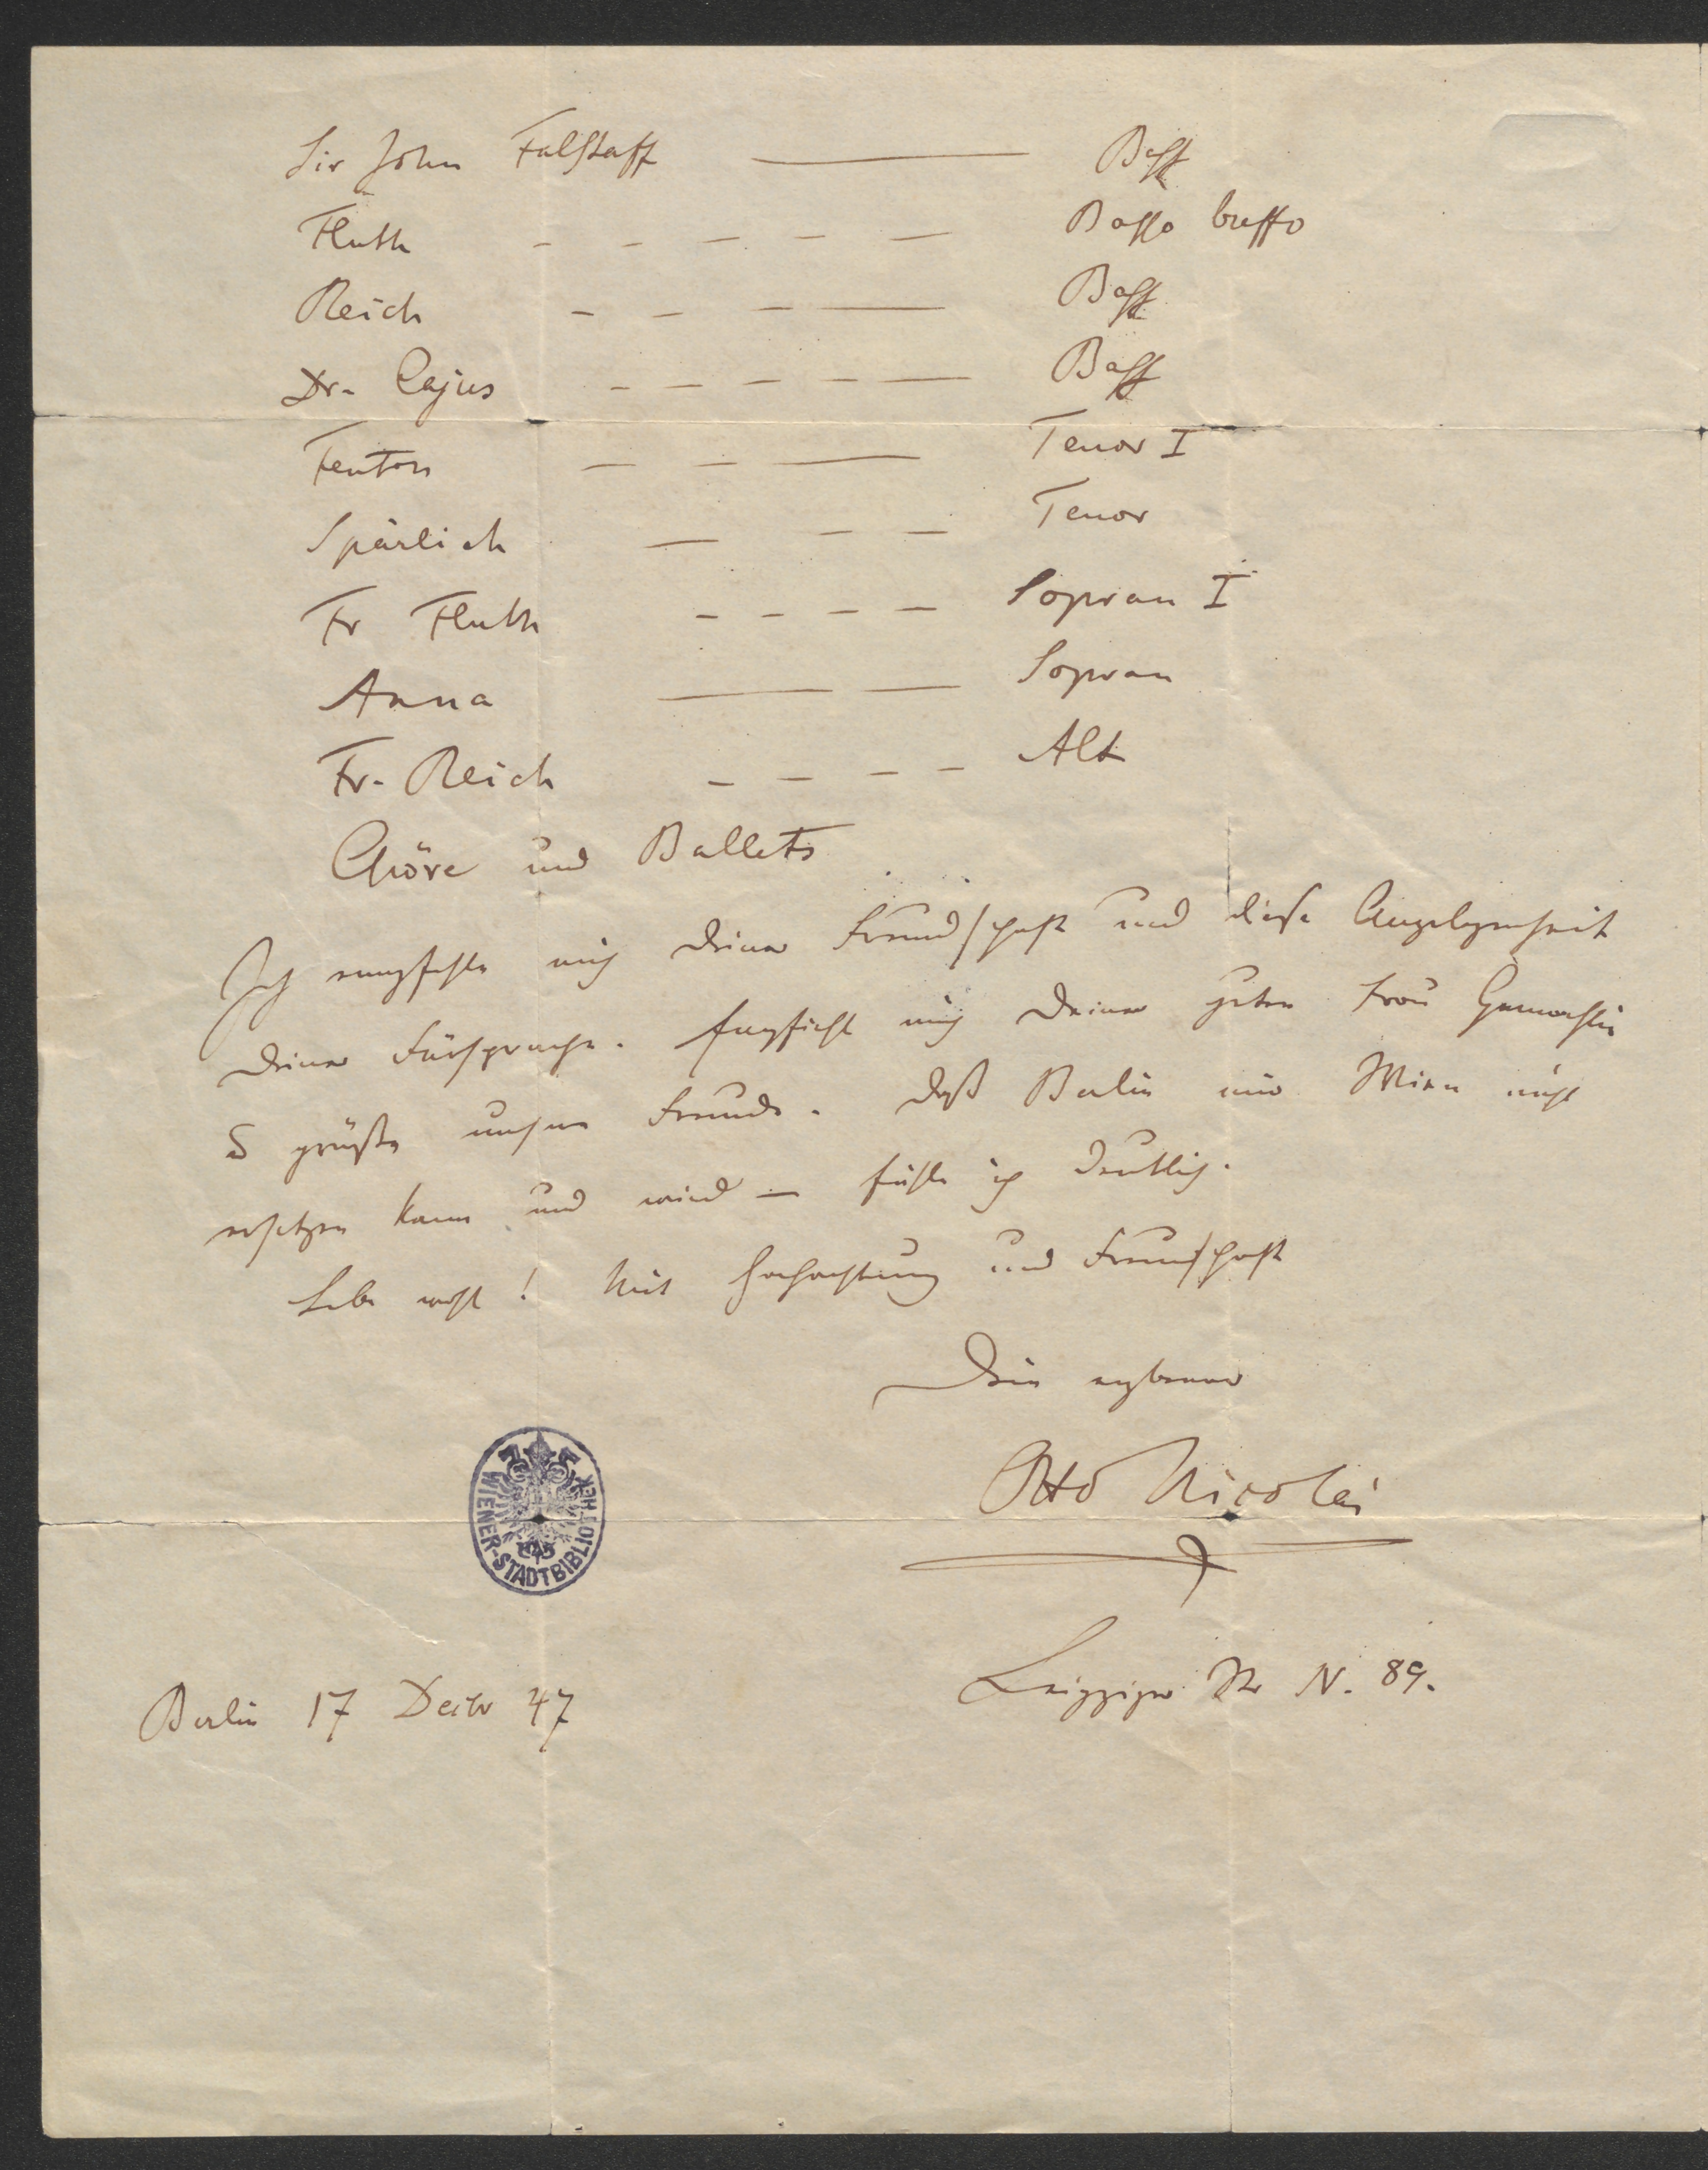 Sir John Falstaff — Bass
Fluth - - - - — Basso buffo
Reich - - - — Bass
Dr. Cajus - - - - — Bass
Fenton — - — Tenor I
Spärlich — - - Tenor
Fr Fluth - - - - Sopran I
Anna — — Sopran
Fr. Reich - - - - Alt
Chöre und Ballets
Ich empfehle mich Deiner Freundschaft und diese Angelegenheit
Deiner Fürsprache. Empfiehl mich Deiner guten Frau Gemahlin
& grüße unsere Freunde. Daß Berlin mir Wien nicht
ersetzen kann und wird — fühle ich deutlich.
Lebe wohl! Mit Hochachtung und Freundschaft
Dein ergebener
Otto Nicolai
WIENER-STADTBIBLIOTHEK
Leipziger Str N. 89.
Berlin 17 Decbr 47